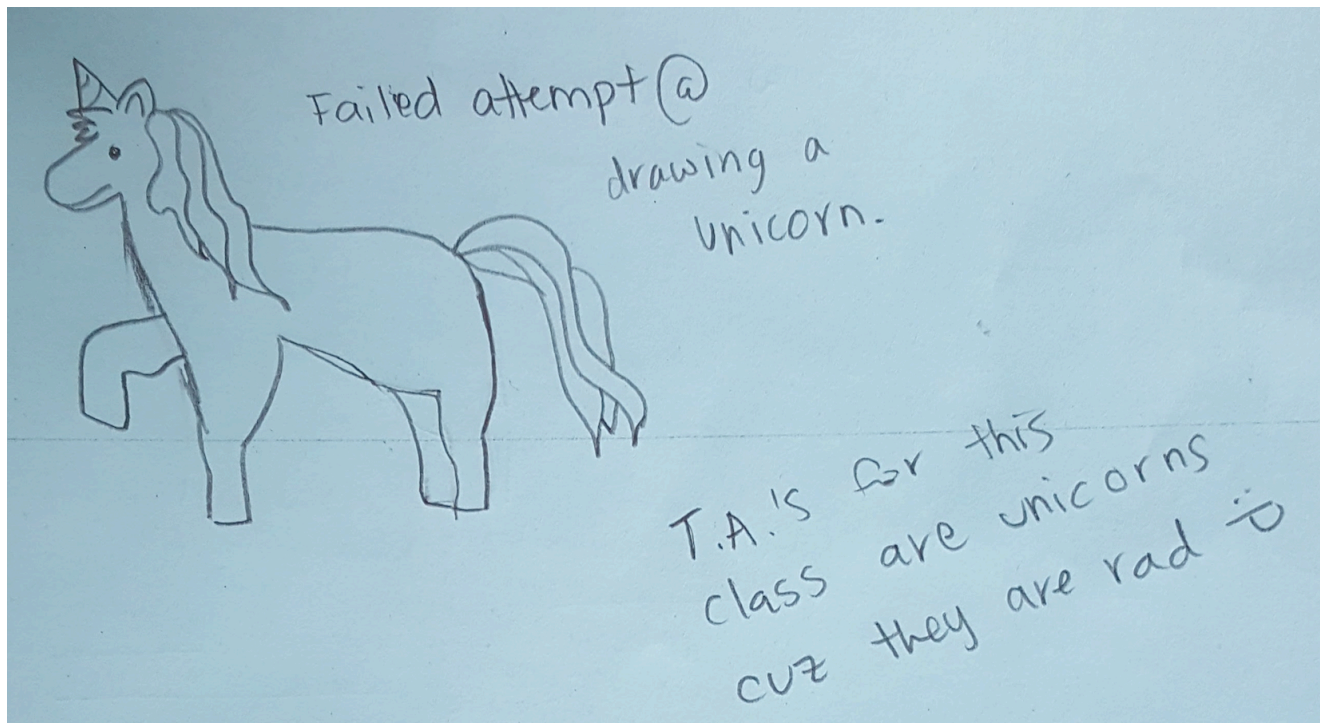 Failed attempt @
drawing a
unicorn.
T.A.'s for this
class are unicorns
cuz they are rad :D